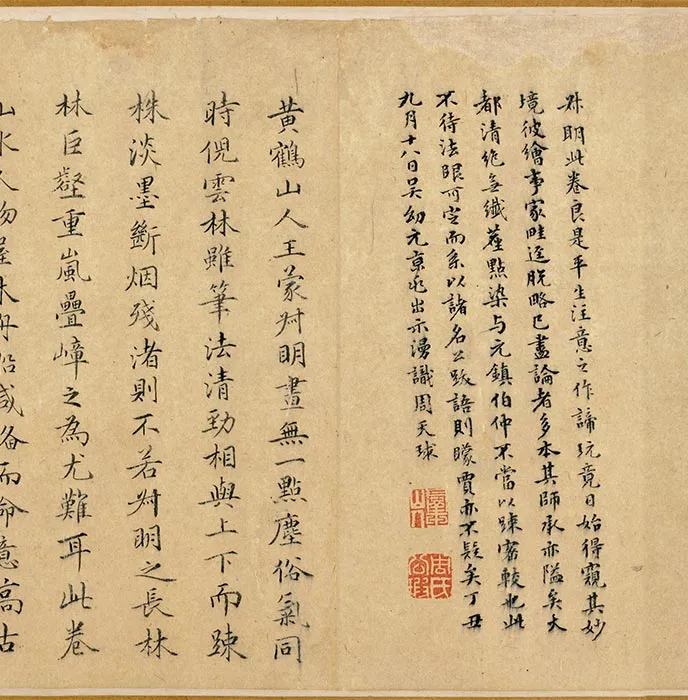 叔明此卷良是平生注意之作諦玩竟日始得窺其妙
境彼繪事家畦逕脫略已盡論者多本其師承亦隘矣大
都清絕無纖塵點染与元鎮伯仲不當以踈密較也此
不待法眼可定而系以諸名公跋語則矇賈亦不疑矣丁丑
九月十八日吳幼元京兆出示漫識周天球
周氏公瑕
黃鶴山人王蒙叔明畫無一點塵俗氣同
時倪雲林雖筆法清勁相與上下而踈
株淡墨斷烟殘渚則不若叔明之長林
林巨壑重嵐疊嶂之為尤難耳此卷
山水人物屋木舟船咸备而命意高古